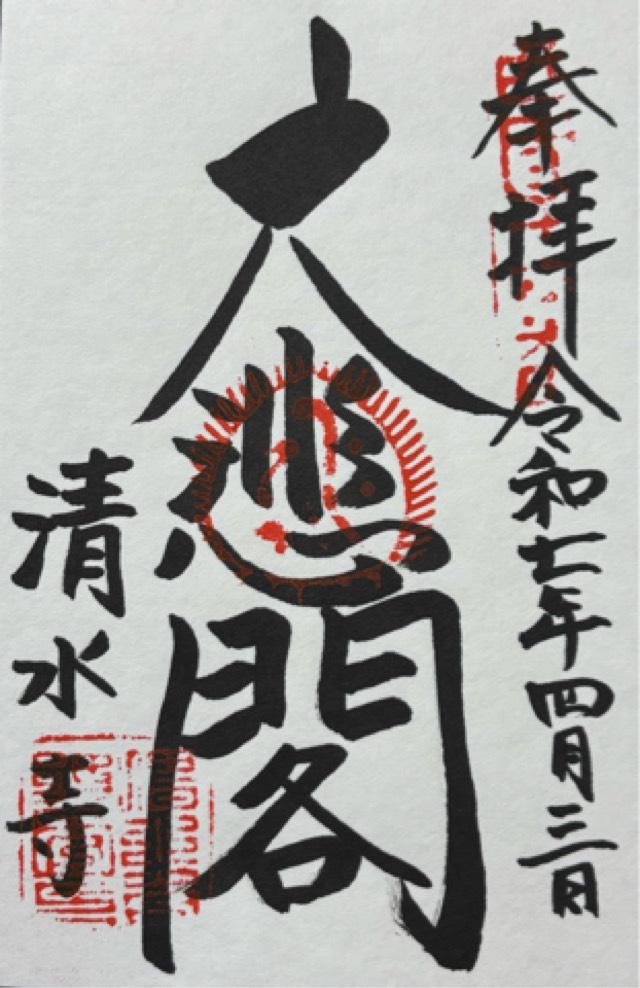 奉拝
令和七年四月三日
大悲閣
清水寺